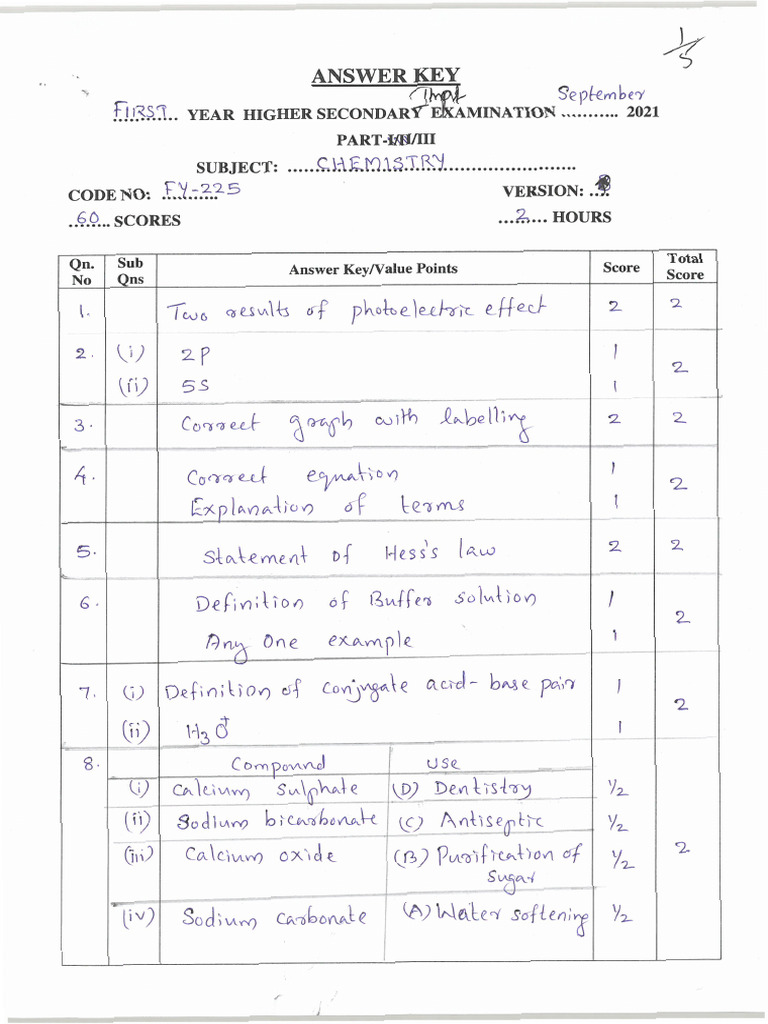 1/5
ANSWER KEY
FIRST YEAR HIGHER SECONDARY Impt EXAMINATION September 2021
PART-I/II/III
SUBJECT: CHEMISTRY
CODE NO: FY-225 VERSION:
60 SCORES 2 HOURS
Qn. No Sub Qns Answer Key/Value Points Score Total Score
1. Two results of photoelectric effect 2 2
2. (i) 2P 1 2
(ii) 5S 1
3. Correct graph with labelling 2 2
4. Correct equation 1 2
Explanation of terms 1
5. Statement of Hess's law 2 2
6. Definition of Buffer solution 1 2
Any One example 1
7. (i) Definition of conjugate acid-base pair 1 2
(ii) H3O+ 1
8. Compound Use 2
(i) Calcium Sulphate (D) Dentistry 1/2
(ii) Sodium bicarbonate (C) Antiseptic 1/2
(iii) Calcium oxide (B) Purification of sugar 1/2
(iv) Sodium carbonate (A) Water softening 1/2